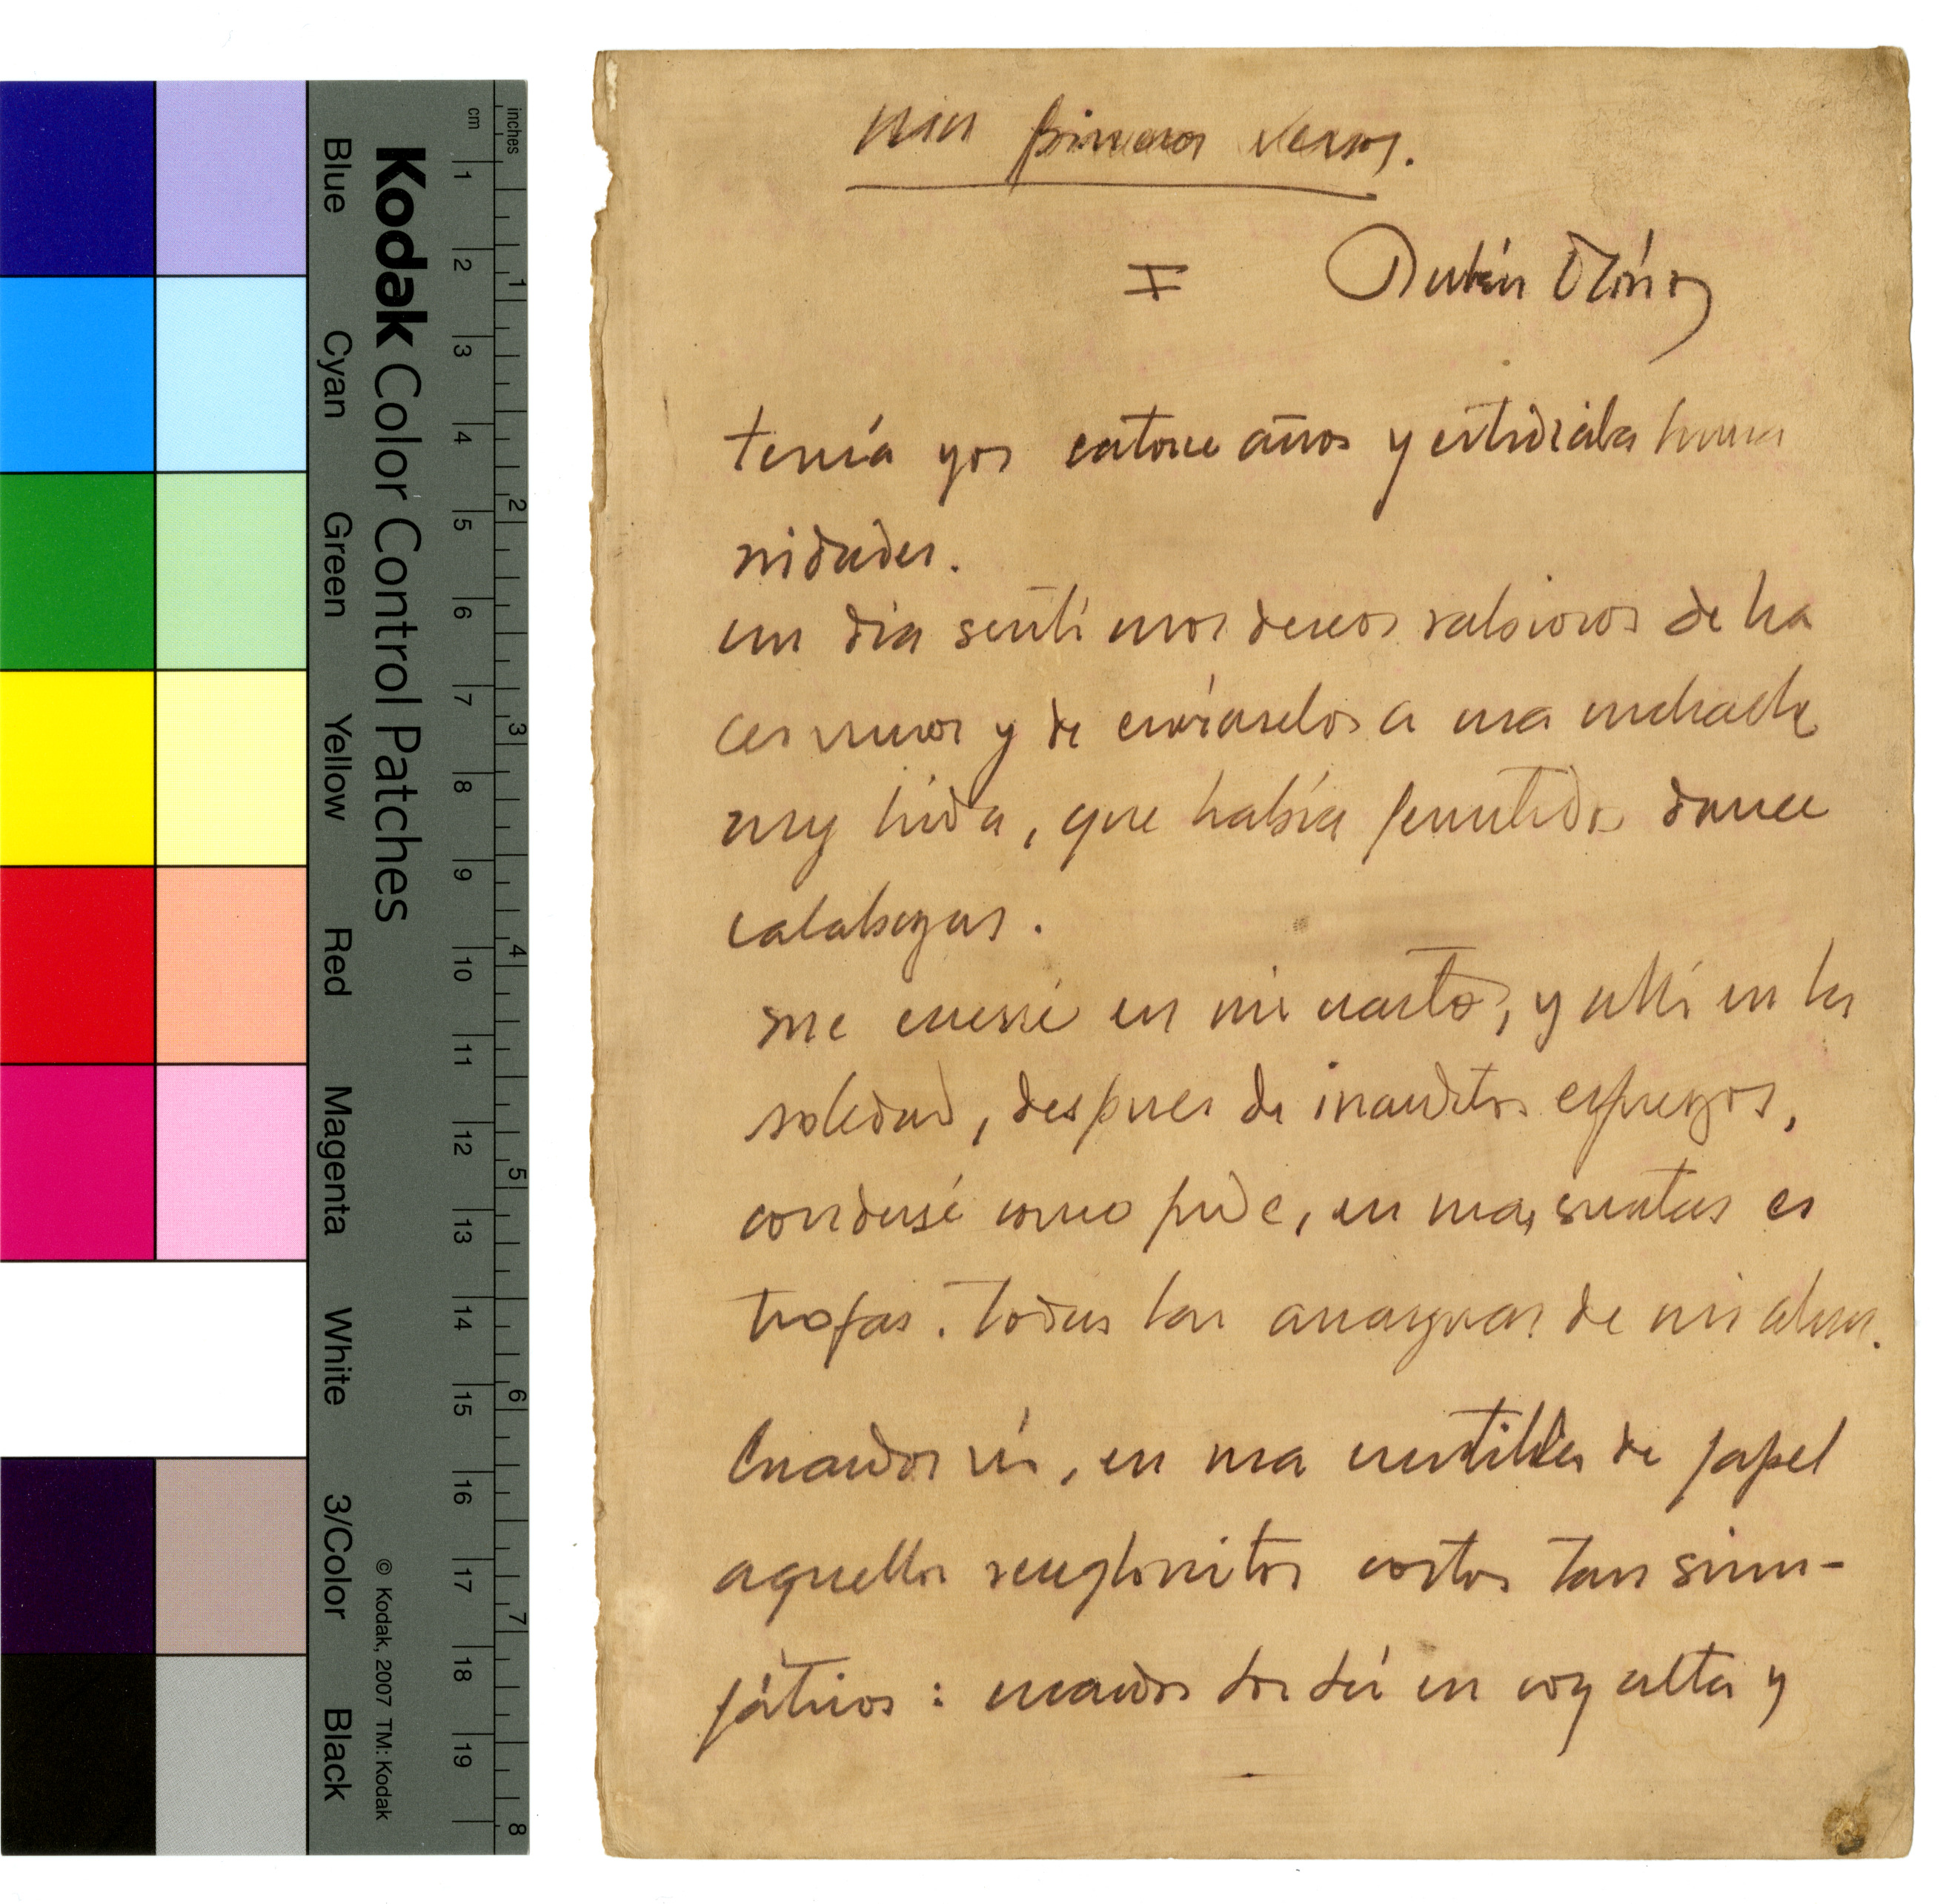 Kodak Color Control Patches
Blue Cyan Green Yellow Red Magenta White 3/Color Black
© Kodak, 2007 TM: Kodak
cm 1 2 3 4 5 6 7 8 9 10 11 12 13 14 15 16 17 18 19
inches 1 2 3 4 5 6 7 8
Mis primeros versos.
I Rubén Darío
tenía yo catorce años y estudiaba huma
nidades.
un dia sentí unos deseos rabiosos de ha
cer versos y de enviárselos a una muchacha
muy linda, que había permitido darme
calabazas.
me encerré en mi cuarto, y allí en la
soledad, despues de inauditos esfuerzos,
condensé como pude, en unas cuantas es
trofas. todas las amarguras de mi alma.
Cuando ví, en una cuartilla de papel
aquellos rengloncitos cortos tan sim-
páticos: cuando los leí en voz alta y